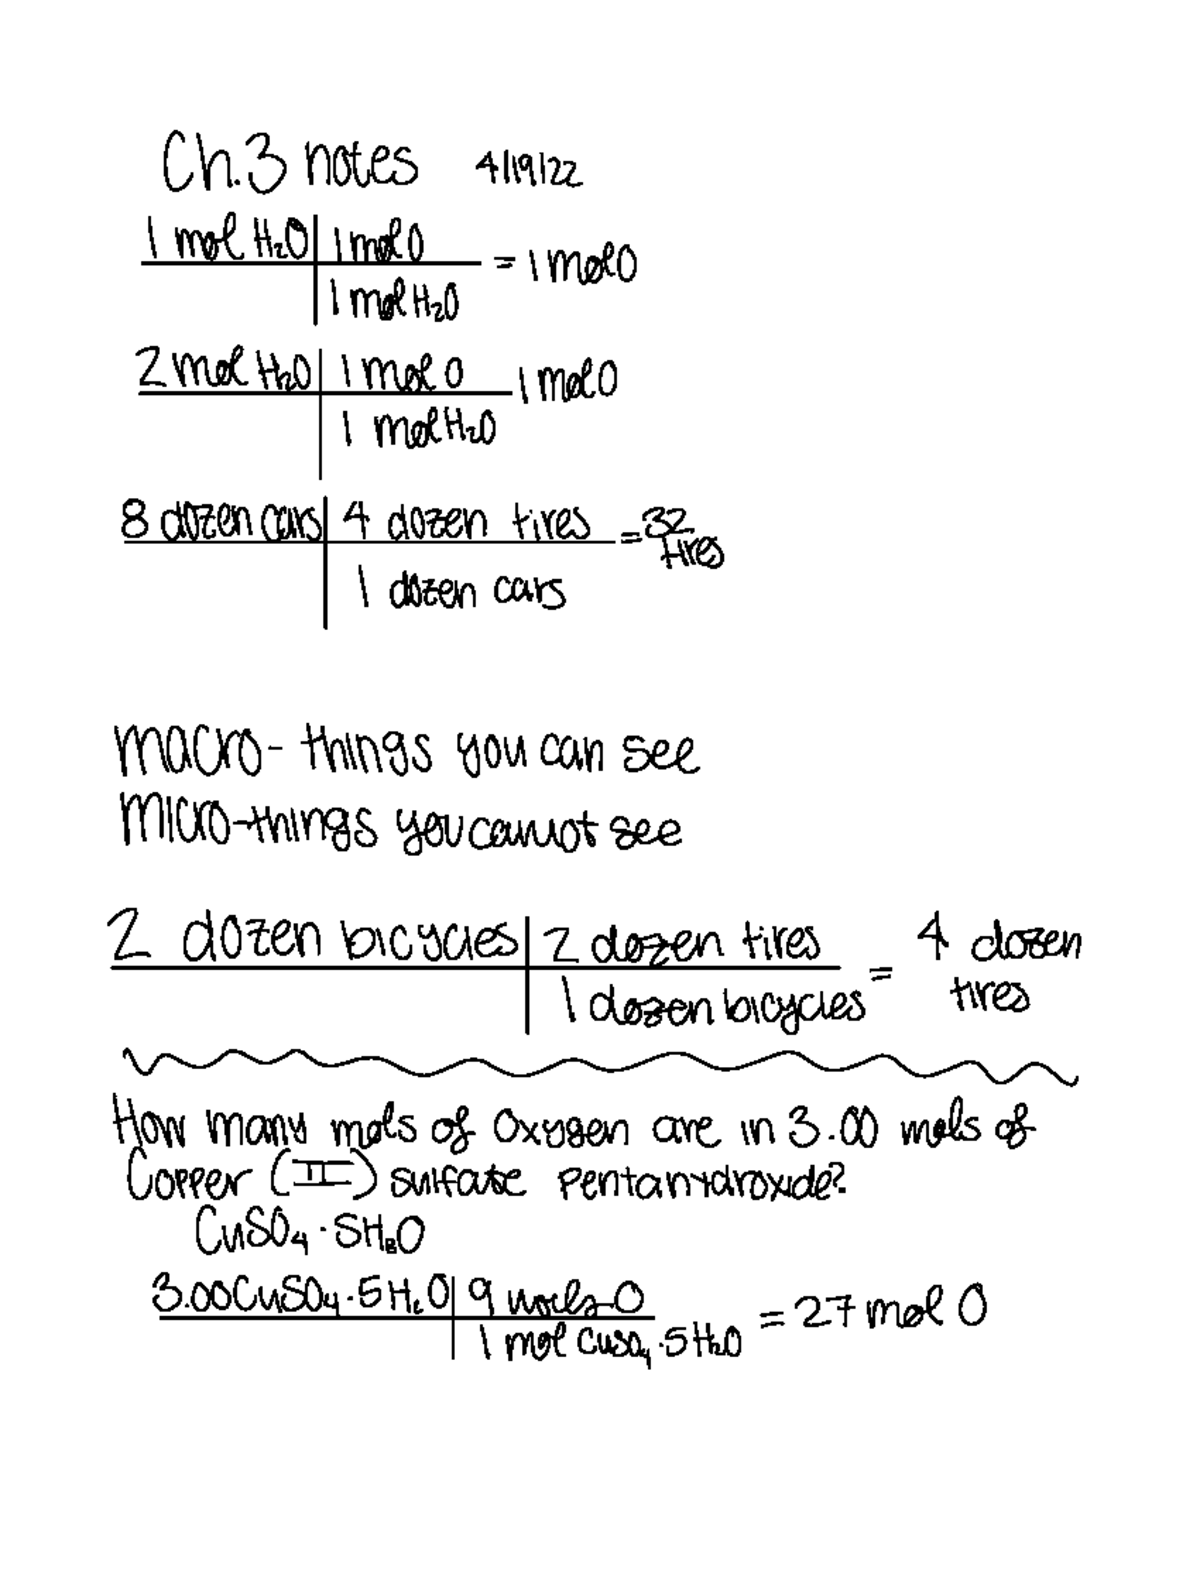 Ch.3 notes 4/19/22
1 mol H₂O | 1 mol O = 1 mol O
1 mol H₂O
2 mol H₂O | 1 mol O 1 mol O
1 mol H₂O
8 dozen cars | 4 dozen tires = 32 tires
1 dozen cars
macro- things you can see
Micro-things you cannot see
2 dozen bicycles | 2 dozen tires = 4 dozen tires
1 dozen bicycles
How many mols of Oxygen are in 3.00 mols of
Copper (II) sulfate pentahydroxide?
CuSO₄ · 5H₂O
3.00 CuSO₄ · 5H₂O | 9 mols O = 27 mol O
1 mol CuSO₄ · 5H₂O